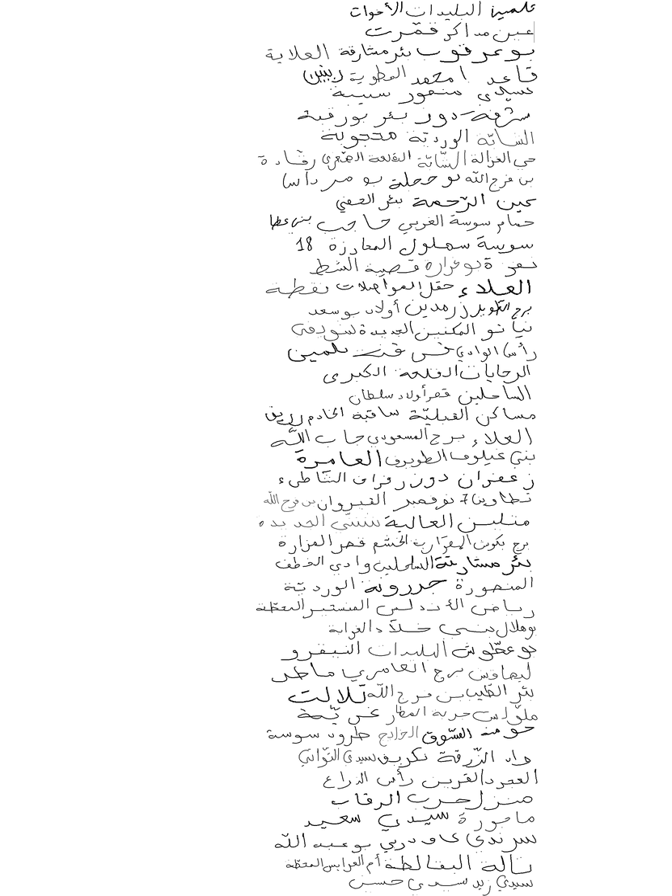 تلمين البليدات الأخوات
عين مداكر قمرت
بوعرقوب بئر مشارقة العلاية
قاعد امحمد المطوية زينين
سيدي منصور سبيبة
شرفة دوز بئر بورقبة
الشابّة الورديّة محجوبة
حي الغزالة الشابّة القلعة الصغرى رقادة
بن فرج الله بو حجلة بو مرداس
عين الرّحمة بئر الحفي
حمام سوسة الغربي حاجب بني عطا
سوسة سهلول المعازرة 18
بوفرارة قصيبة الشط
العلاء حقل المواصلات نقطة
برج الطويل زرمدين أولاد بوسعد
نيانو المكنين الجديدة
رأس الوادي تلمين
الرحايات القلعة الكبرى
الساحلين قصر أولاد سلطان
مساكن القبليّة ساقية الخادم
العلاء برج المسعودي جاب اللّه
بني غيلوف الطويرف العامرة
زعفران دوز زفراف الشاطىء
تطاوين 7 نوفمبر القيروان بن فرج الله
منلسن العالية بنبنّي الجديدة
برج تكوت الخشم قصر الفزارة
بئر مستاريّة الساحلين وادي الخطف
المنصورة جدرونة الورديّة
رياض الأندلس المنستير المحطّة
بوهلال بني خلاد الغرابة
بوعطّوش البليدات النيفرو
ليماوس برج العامري ماطر
بئر الطّيب بن فرج اللّه تلالت
ملّولس جربة المطار
حومة السّوق الخوالدج طرود سوسة
واد الزّرقة تكريف سيدي التّواتي
الفجوج القرين رأس الذراع
منزل حرب الرقاب
ماجورة سيدي سعيد
سرندي بوعبد اللّه
تالة البقالطة أم العرايس المحطّة
سيدي زيد سيدي حسين